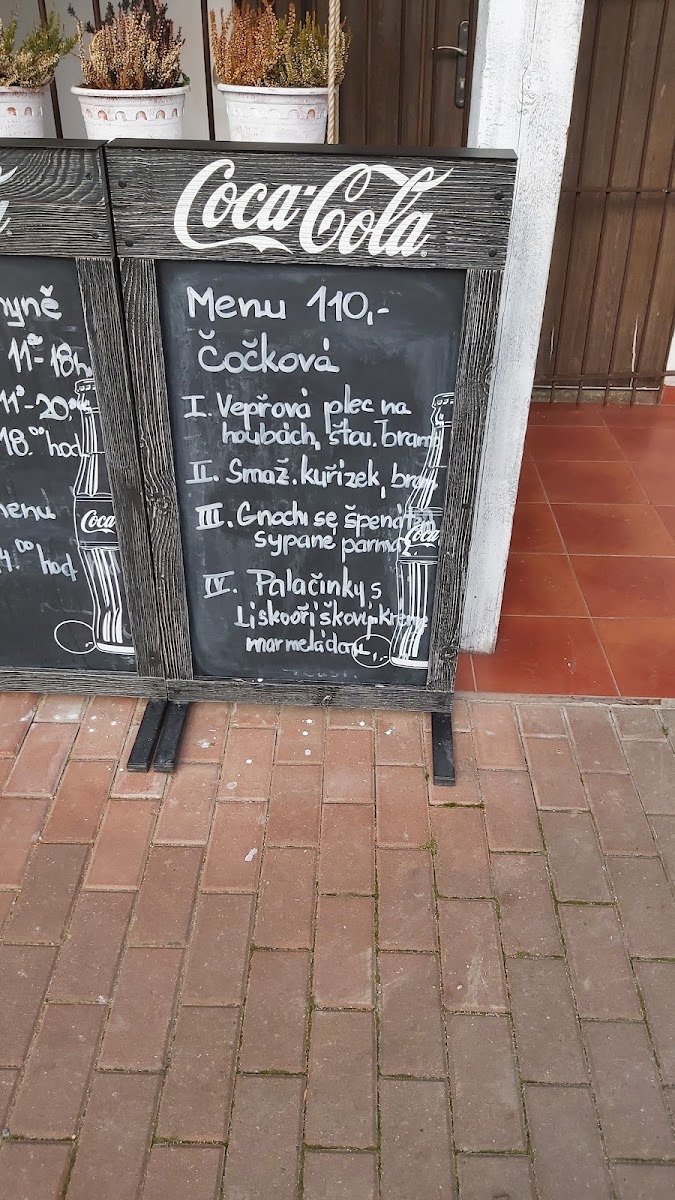 Coca-Cola
nyně
11⁰⁰-18h
11⁰-20
18.⁰⁰ hod
menu
4.⁰⁰ hod
Coca
Menu 110,-
Čočková
I. Vepřová plec na
houbách, šťou. bram
II. Smaž. kuř. řízek, bram
III. Gnochi se špená
sypané parma
IV. Palačinky s
Lískooříškovým Kréme
marmeládou
Coca